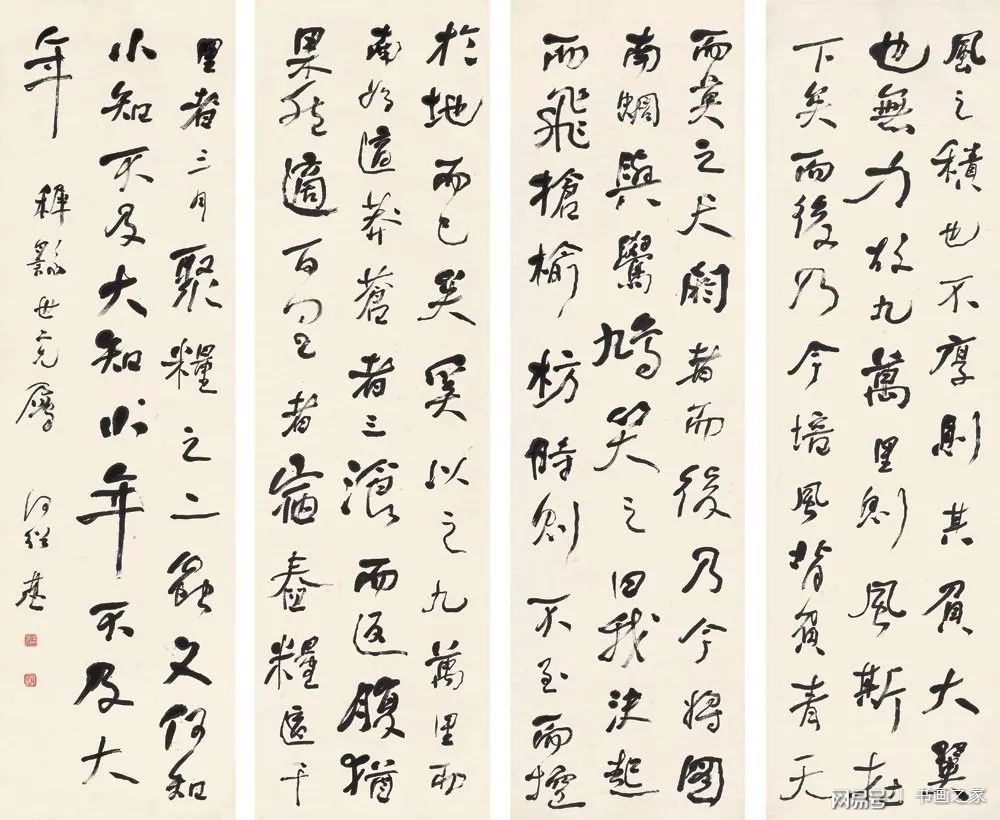 風之積也不厚則其負大翼
也無力故九萬里則風斯在
下矣而後乃今培風背負青天
而莫之夭閼者而後乃今將圖
南蜩與鷽鳩笑之曰我決起
而飛搶榆枋時則不至而控
於地而已矣奚以之九萬里而
南為適莽蒼者三湌而返腹猶
果然適百里者宿舂糧適千
里者三月聚糧之二蟲又何知
小知不及大知小年不及大
年
世兄屬
何紹基
网易号 | 书画之家